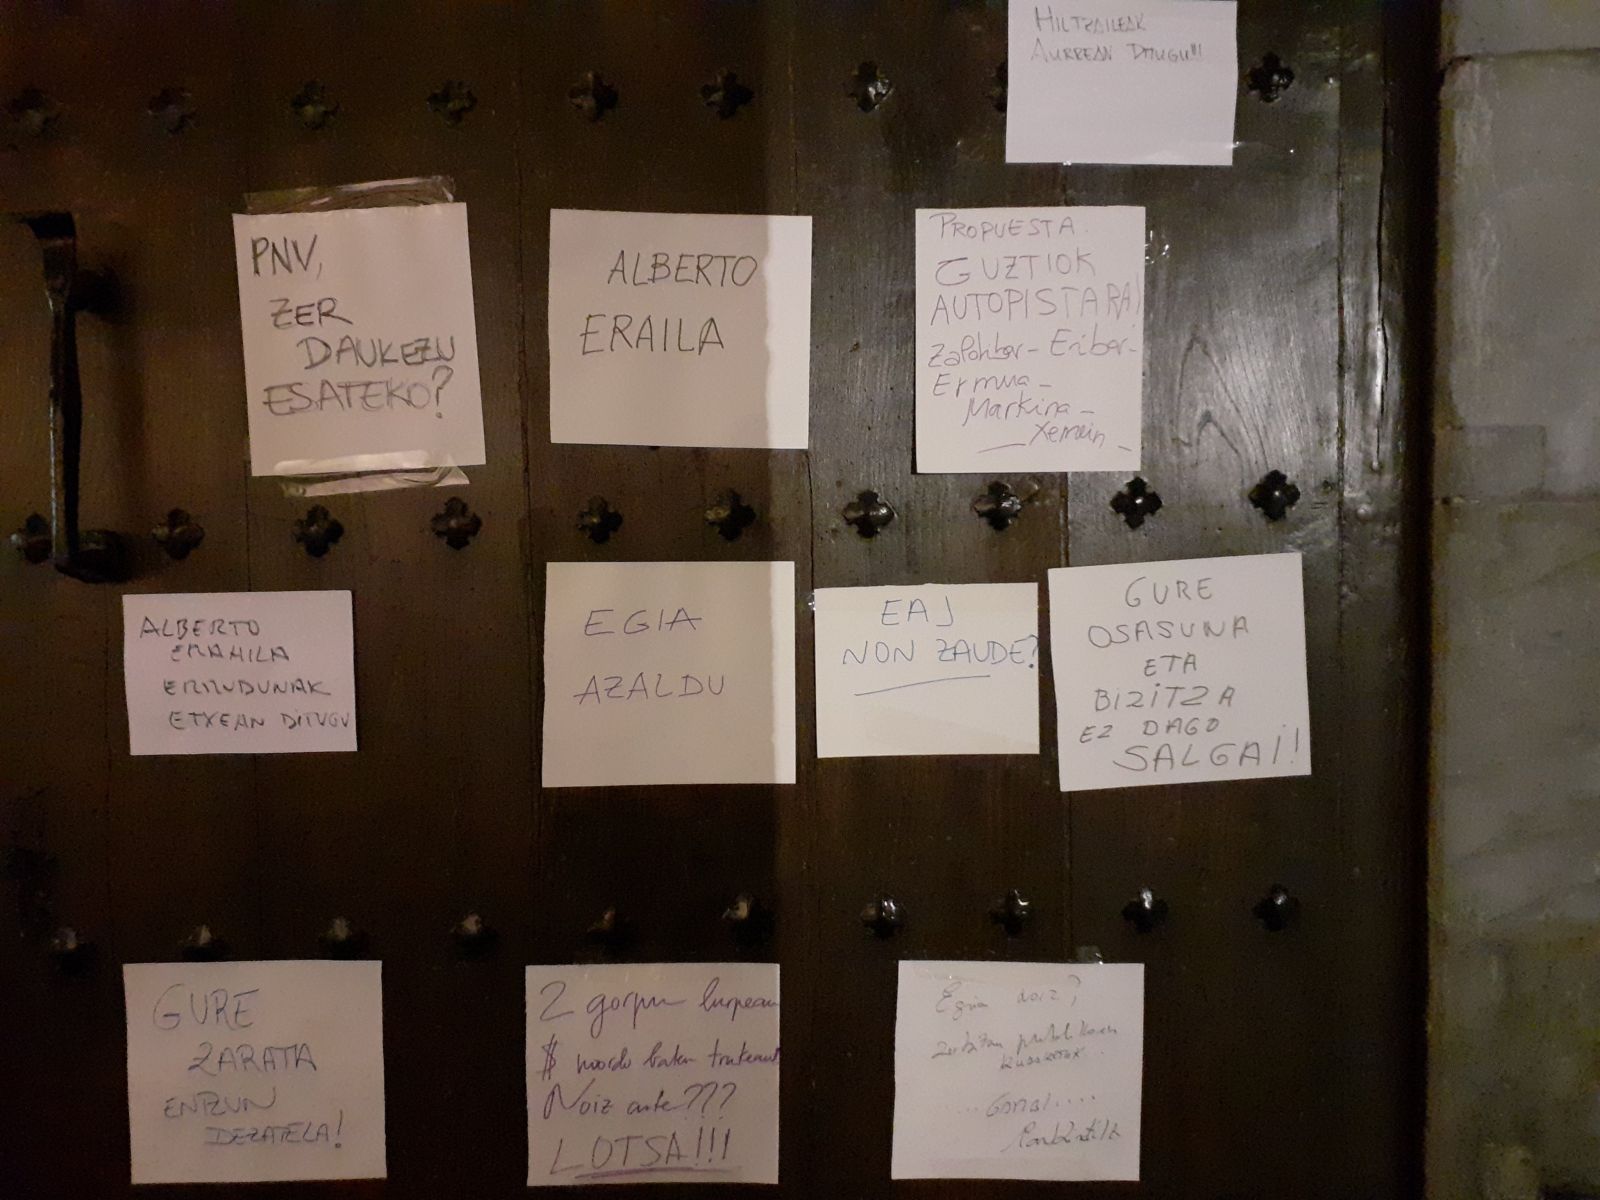 HILTZAILEAK
AURREAN DITUGU!!!
PNV,
ZER
DAUKEZU
ESATEKO?
ALBERTO
ERAILA
PROPUESTA.
GUZTIOK
AUTOPISTARA!
Zaldibar - Eibar -
Ermua -
Markina -
Xemein -
ALBERTO
ERAHILA
ERRUDUNAK
ETXEAN DITUGU
EGIA
AZALDU
EAJ
NON ZAUDE?
GURE
OSASUNA
ETA
BIZITZA
EZ DAGO
SALGAI!
GURE
ZARATA
ENTZUN
DEZATELA!
2 gorpu lurpean
$ mordo baten trukean
Noiz arte???
LOTSA!!!
Egia noiz?
publikoen